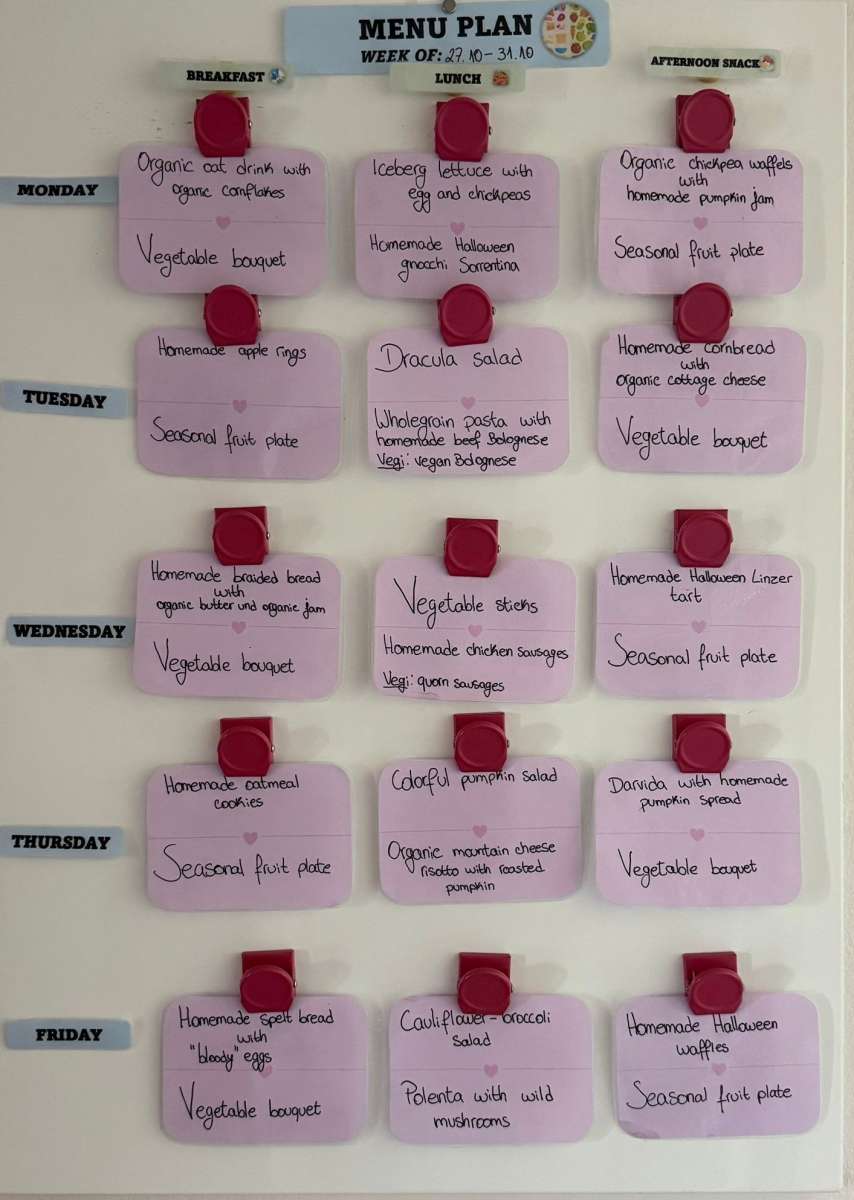 MENU PLAN
WEEK OF: 27.10 - 31.10
BREAKFAST
LUNCH
AFTERNOON SNACK
MONDAY
Organic oat drink with
organic cornflakes
Vegetable bouquet
Iceberg lettuce with
egg and chickpeas
Homemade Halloween
gnocchi Sorrentina
Organic chickpea waffels
with
homemade pumpkin jam
Seasonal fruit plate
TUESDAY
Homemade apple rings
Seasonal fruit plate
Dracula salad
Wholegrain pasta with
homemade beef Bolognese
Vegi: vegan Bolognese
Homemade cornbread
with
organic cottage cheese
Vegetable bouquet
WEDNESDAY
Homemade braided bread
with
organic butter und organic jam
Vegetable bouquet
Vegetable sticks
Homemade chicken sausages
Vegi: quorn sausages
Homemade Halloween Linzer
tart
Seasonal fruit plate
THURSDAY
Homemade oatmeal
cookies
Seasonal fruit plate
Colorful pumpkin salad
Organic mountain cheese
risotto with roasted
pumpkin
Darvida with homemade
pumpkin spread
Vegetable bouquet
FRIDAY
Homemade spelt bread
with
"bloody" eggs
Vegetable bouquet
Cauliflower-broccoli
salad
Polenta with wild
mushrooms
Homemade Halloween
waffles
Seasonal fruit plate